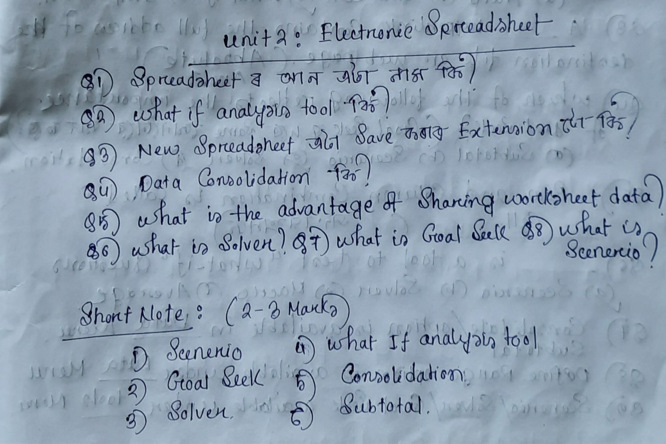 Unit 2: Electronic Spreadsheet
Q1) Spreadsheet ৰ আন এটা নাম কি?
Q2) what if analysis tool কি?
Q3) New Spreadsheet এটা Save কৰাৰ Extension টো কি?
Q4) Data Consolidation কি?
Q5) what is the advantage of Sharing worksheet data?
Q6) what is Solver? Q7) what is Goal Seek Q8) what is Scenerio?
Short Note: (2-3 Marks)
1) Scenerio 4) what If analysis tool
2) Goal Seek 5) Consolidation.
3) Solver. 6) Subtotal.